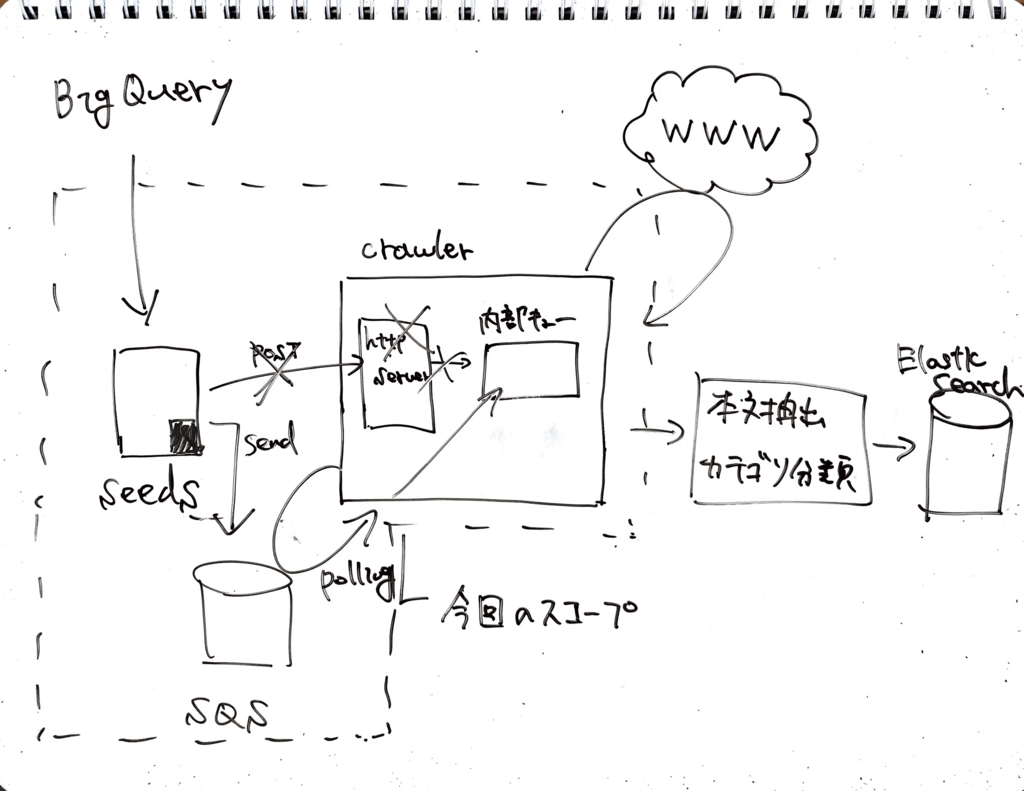 BigQuery
WWW
crawler
POST
http
server
内部キュー
Elastic
search
本文抽出
カテゴリ分類
send
seeds
polling
今回のスコープ
SQS